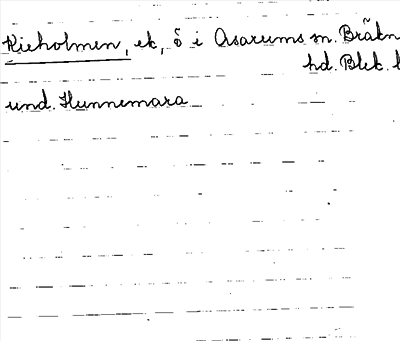 Rieholmen, ek, ö i Asarums sn. Bräkn
hd. Blek. l
und. Hunnemara